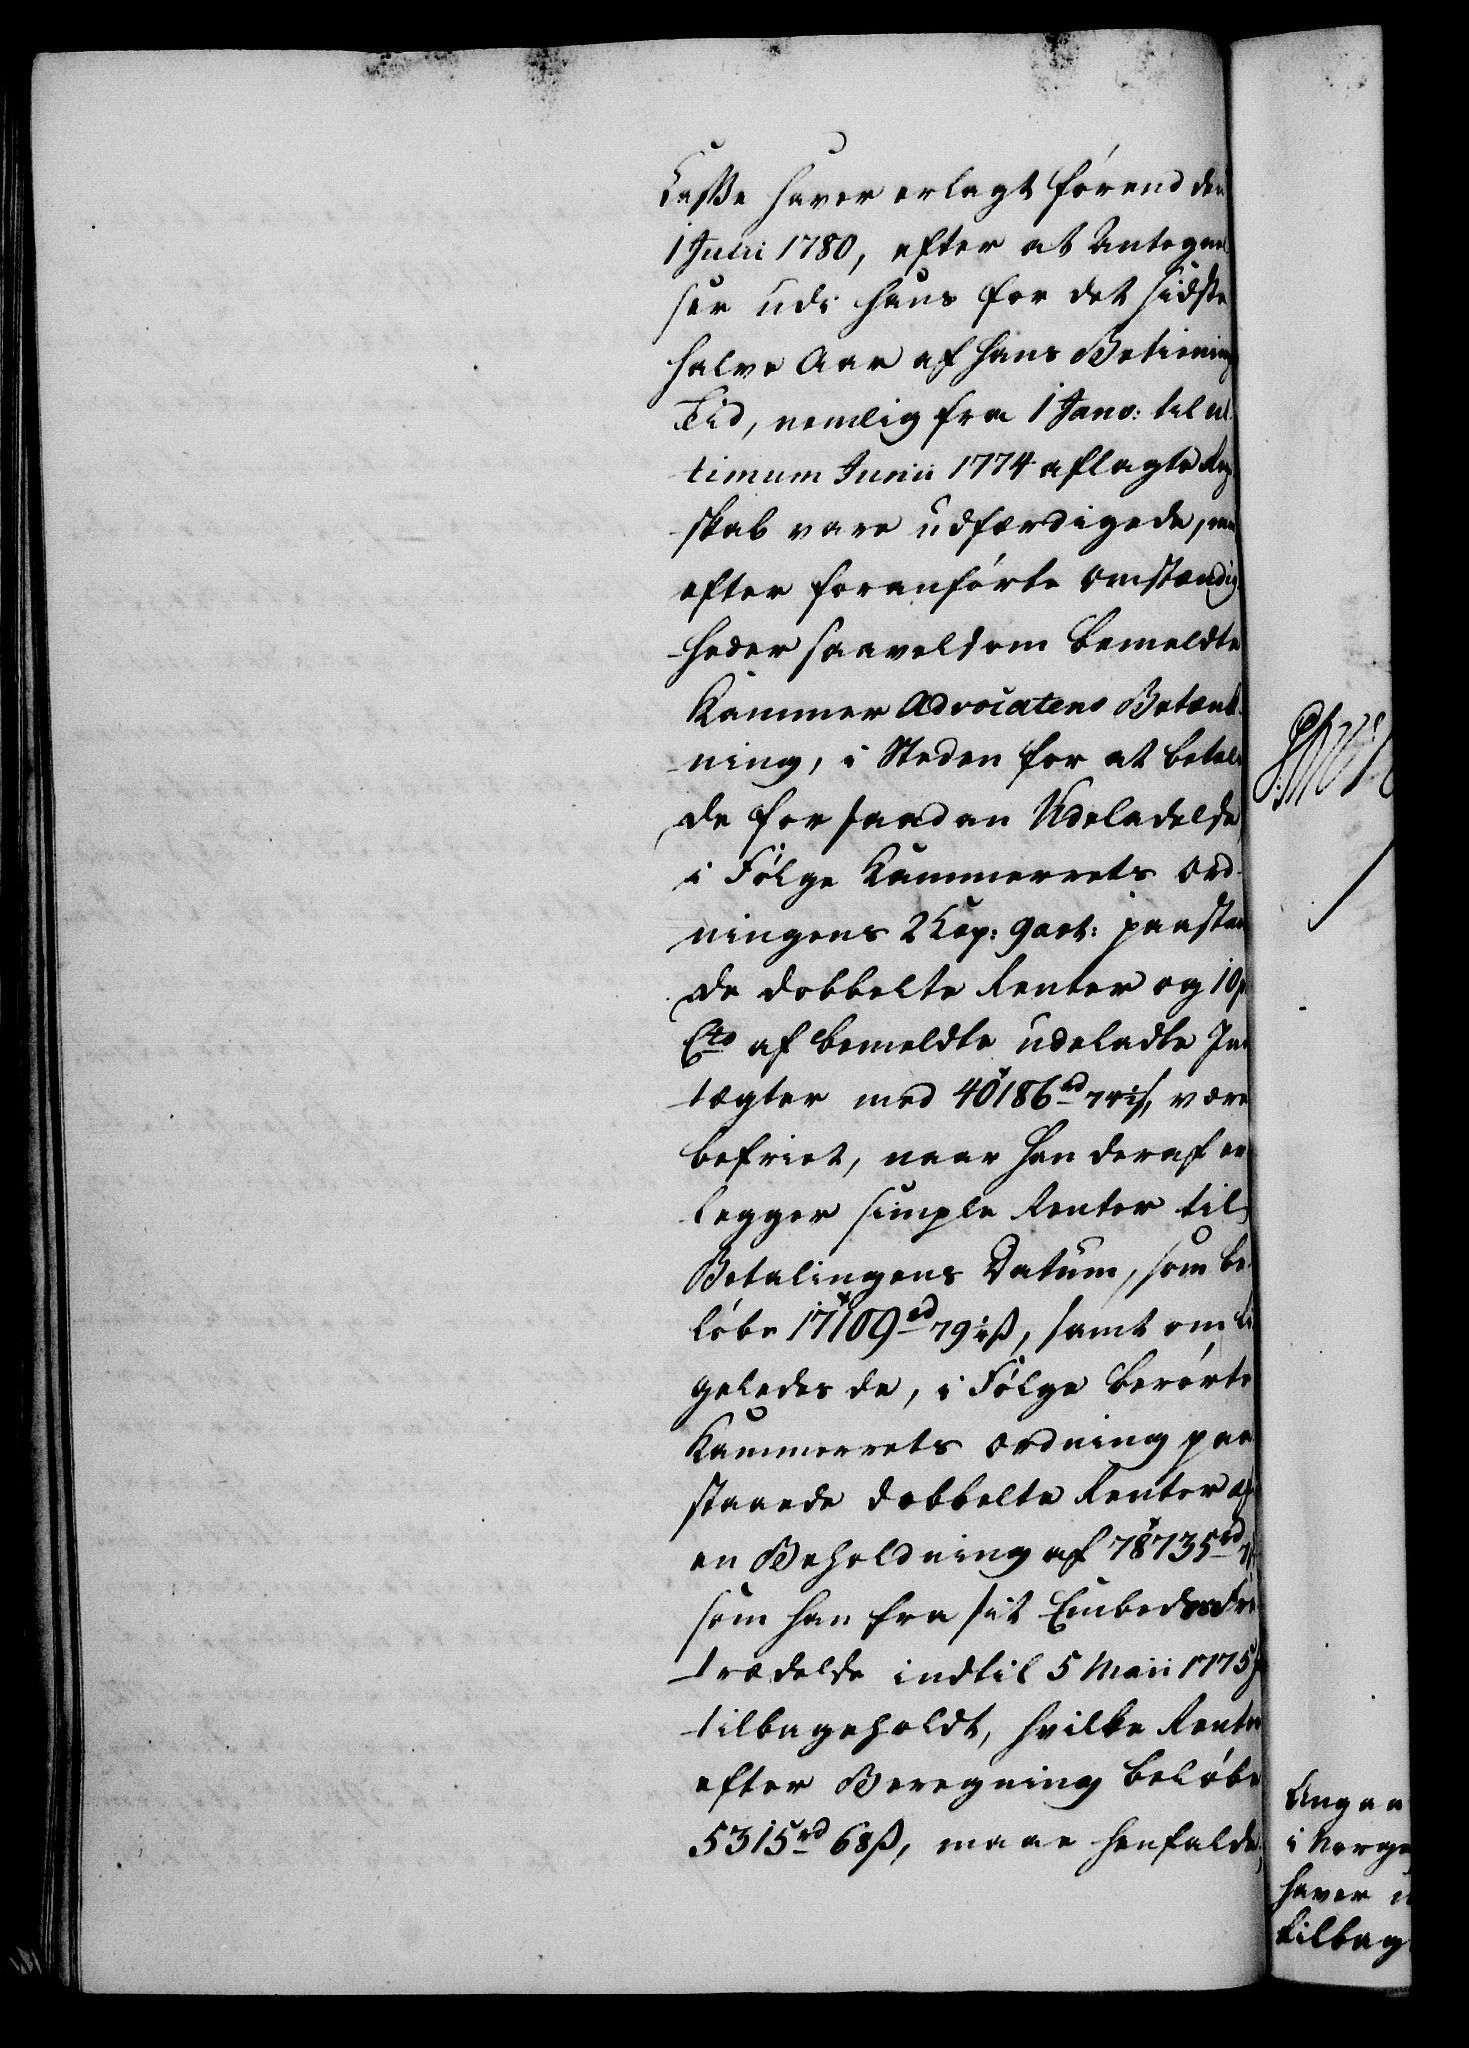 Casse haver erlagt førend den
1 Julii 1780, efter at Antegnel
ser udi hans for det sidste
halve Aar af hans Betienings
Tid, nemlig fra 1 Janv: til ul
timum Junii 1774 aflagte Reg
skab vare udfærdigede, men
efter foranførte Omstændig
heder saavelsom bemeldte
Kammer Advocatens Betænk
ning, i Steden for at betale
de for saadan Udeladelse
i Følge Kammerrets Ord
ningens 2 Cap: 9 art: paastaae
de dobbelte Renter og 10 p
Cto af bemeldte udeladte Ind
tægter med 40186 rd 74½ s, være
befriet, naar han deraf er
legger simple Renter til
Betalingens Datum, som be
løbe 17109 rd 79½ ß, samt om li
geledes de, i Følge berørte
Kammerrets Ordning paa
staaede dobbelte Renter af
en Beholdning af 78735 rd
som han fra sit Embeds Fra
trædelse indtil 5 Maii 1775
tilbageholdt, hvilke Renter
efter Beregning beløbe
5315 rd 68 ß, maae henfalde,
Angaa
i Norge
haver
tilbag